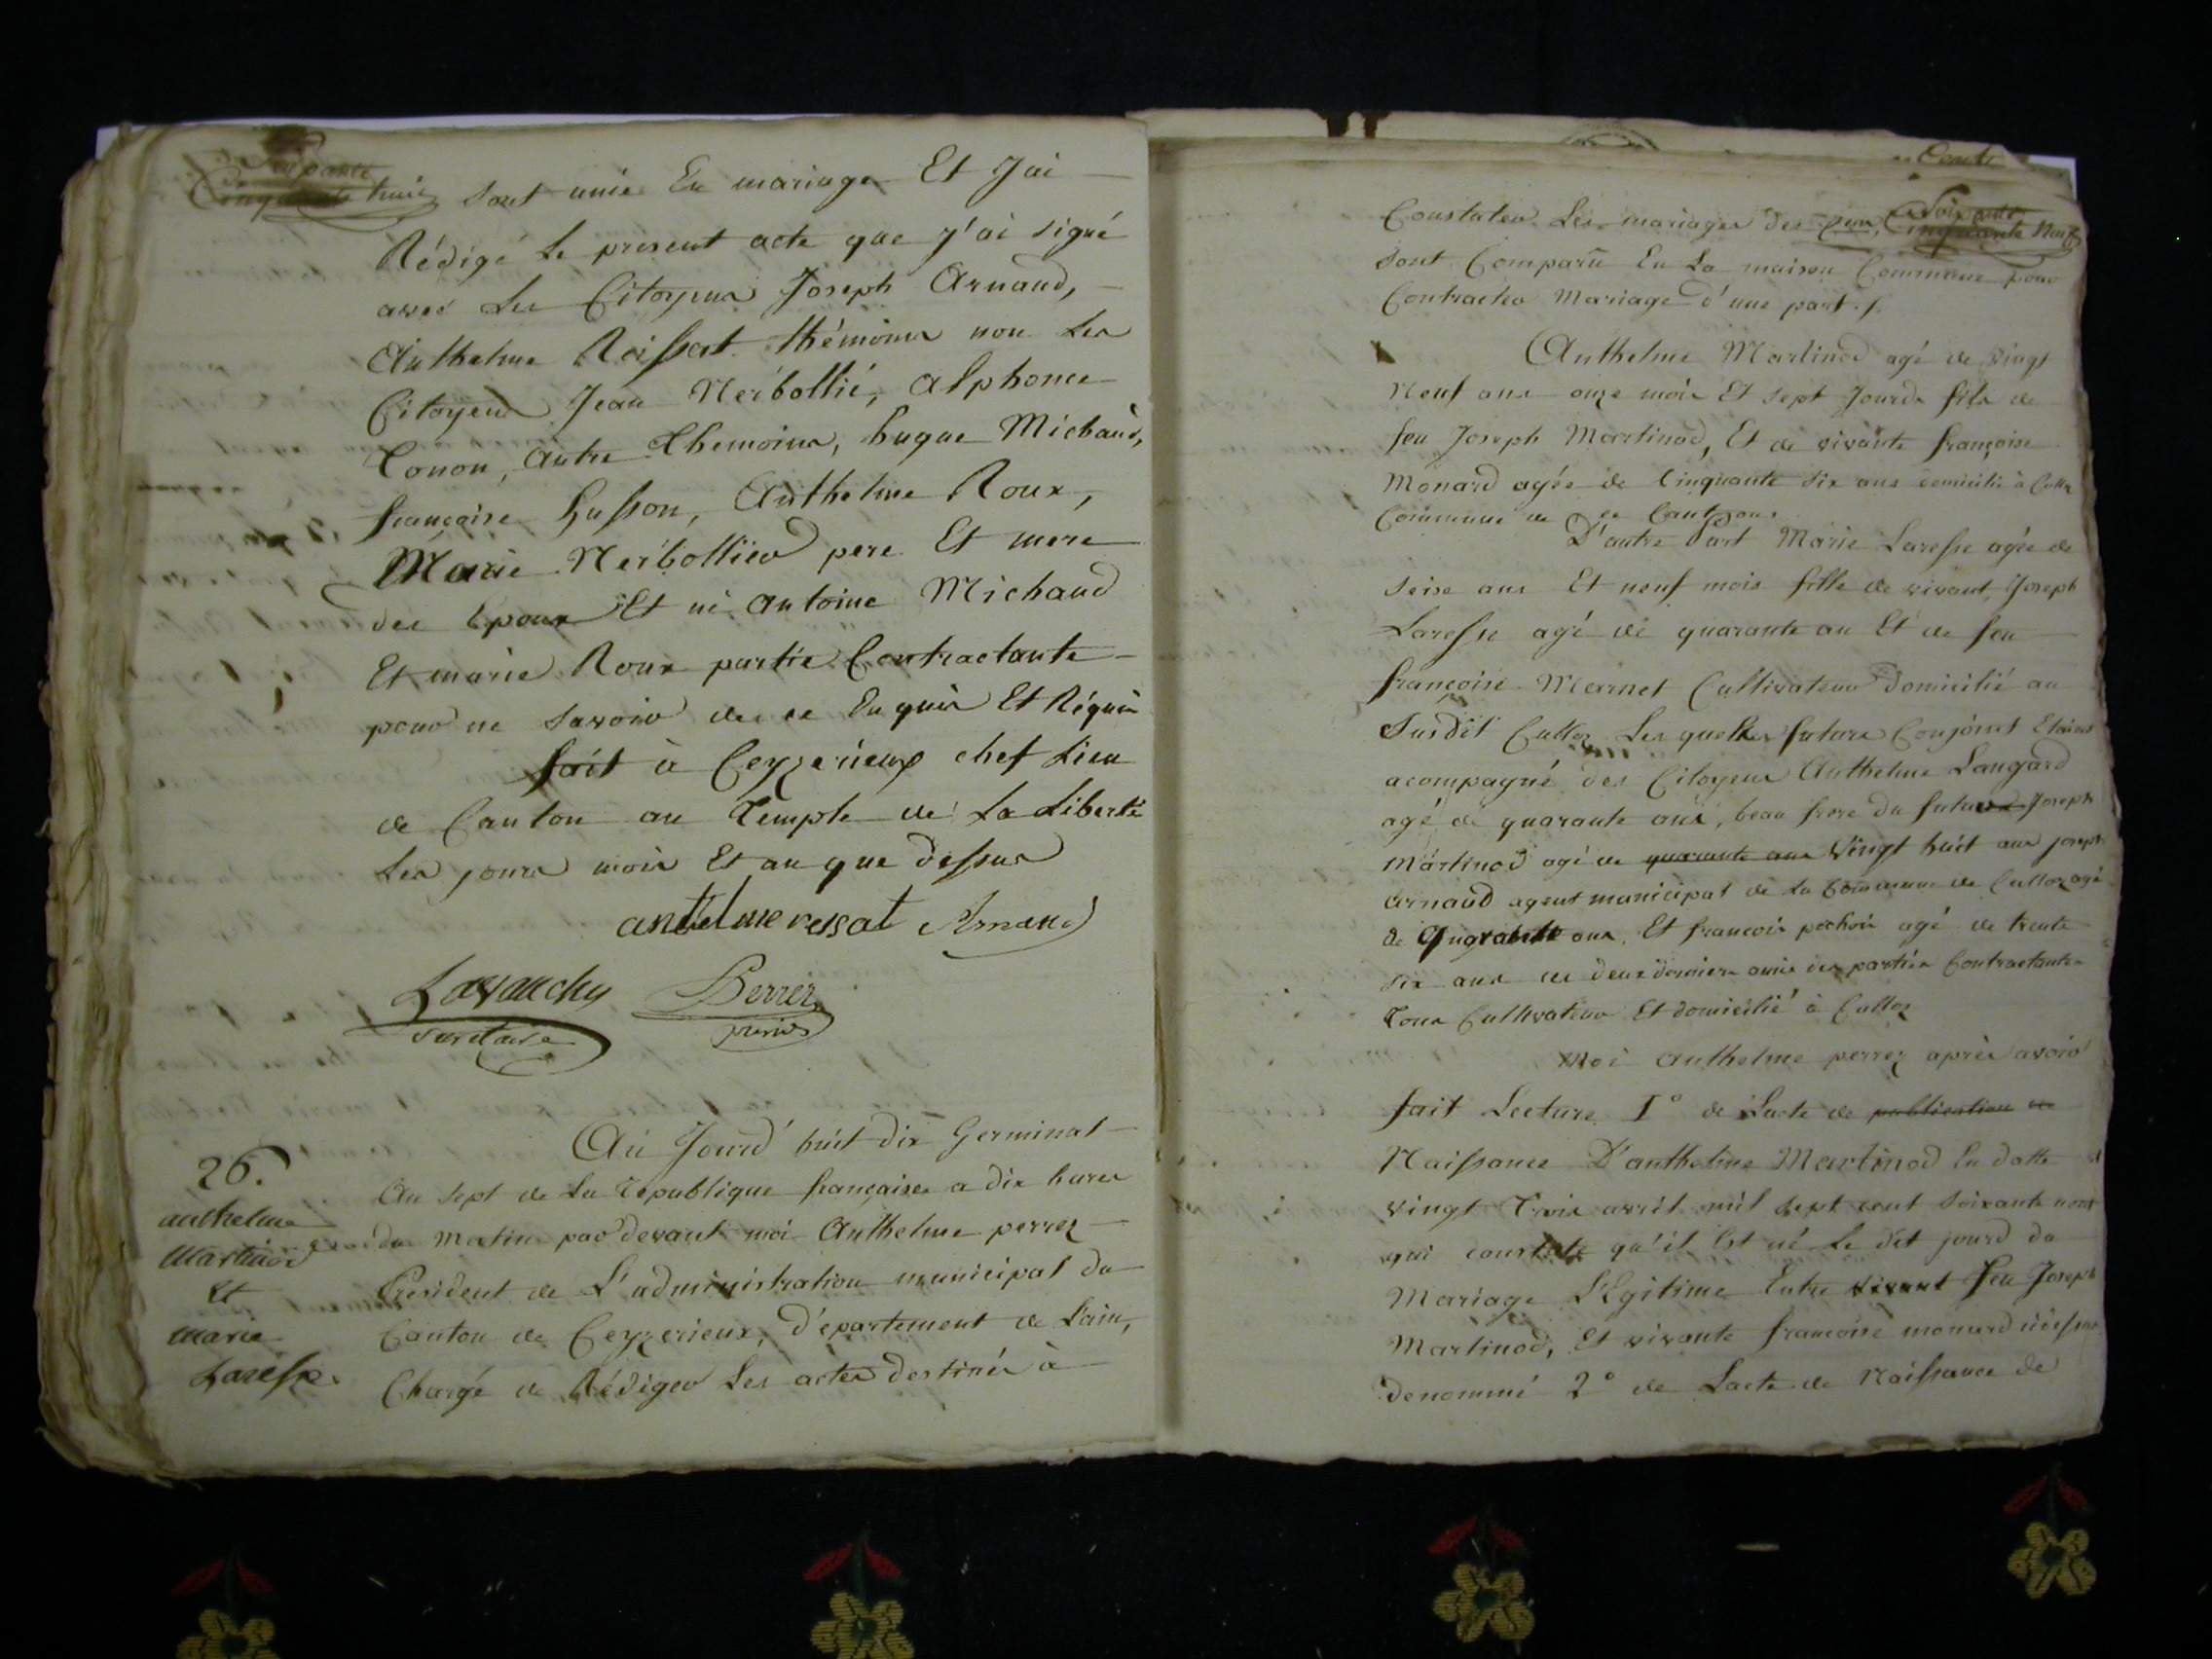 Soixante
Cinquante huit
Sont unie En mariage Et J'ai
Rédigé le present acte que j'ai signé
avec les Citoyens Joseph Arnaud,
Anthelme Raissat thémoins non les
Citoyens Jean Neirbollié, alphonce
Conon, autre themoins, hugue Michaud,
françoise husson, Anthelme Roux,
Marie Neirbollier pere Et mere
des Epoux Et ni Antoine Michaud
Et marie Roux partie Contractante
pour ne savoir de ce Enquis Et Réquis
fait à Ceyzerieux chef Lieu
de Canton au Temple de La Liberté
Les jours mois Et an que dessus
antelme ressat Arnaud
Lavanchy Perrez
secretaire presid
26.
anthelme
Martinod
Et
marie
Laresse
Au Jourd'huit dix Germinal
An sept de la republique française a dix hures
du matin par devant moi Anthelme perrez
President de L'administration municipal du
Canton de Ceyzerieux, département de L'ain,
Chargé de Rédiger Les actes destinés à
Soixante
Cinquante Neuf
Constater Les mariages des
sont Comparu En La maison Commune pour
Contracter Mariage d'une part
Anthelme Martinod agé de vingt
Neuf ans onze mois Et sept Jours fils de
feu Joseph Martinod, Et de vivante françoise
Monard agée de Cinquante six ans domicilié à Culloz
Commune de ce Canton
D'autre Part Marie Laresse agée de
seise ans Et neuf mois fille de vivant Joseph
Laresse agé de quarante an Et de feu
françoise Marnet Cultivateur Domicilié au
Susdit Culloz Les quelles futurs Conjoints Etaint
acompagné des Citoyens Anthelme Laugard
agé de quarante ans, beau frere du futur Joseph
Martinod agé de quarante ans Vingt huit ans joseph
Arnaud agent municipal de la Commune de Culloz agé
de quarante ans, Et francois pochon agé de trente
six ans les deux derniers amis des partiés Contractante
Tous Cultivateur Et domicilié à Culloz
Moi Anthelme perrez après avoir
fait Lecture 1° de L'acte de publication de
Naissance D'anthelme Martinod En datte
vingt Trois avril mil sept cent soixante neuf
qui constate qu'il Est né Le dit jourd du
Mariage L'Egitime Entre vivant feu Joseph
Martinod, Et vivante francoise monard
denommé 2° de L'acte de Naissance de